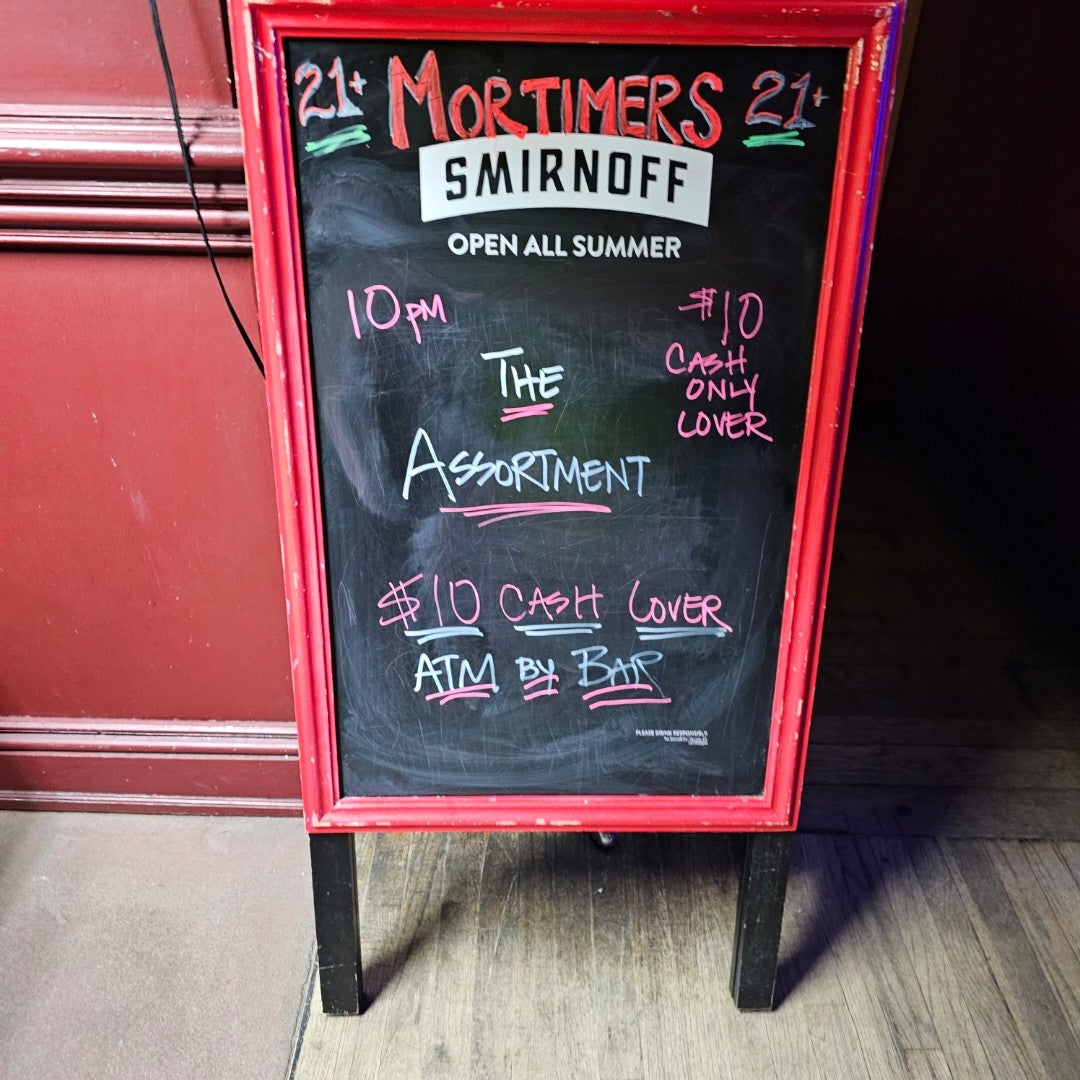 21+ MORTIMERS 21+
SMIRNOFF
OPEN ALL SUMMER
10PM
$10
CASH
ONLY
COVER
THE
ASSORTMENT
$10 CASH COVER
ATM BY BAR
PLEASE DRINK RESPONSIBLY.